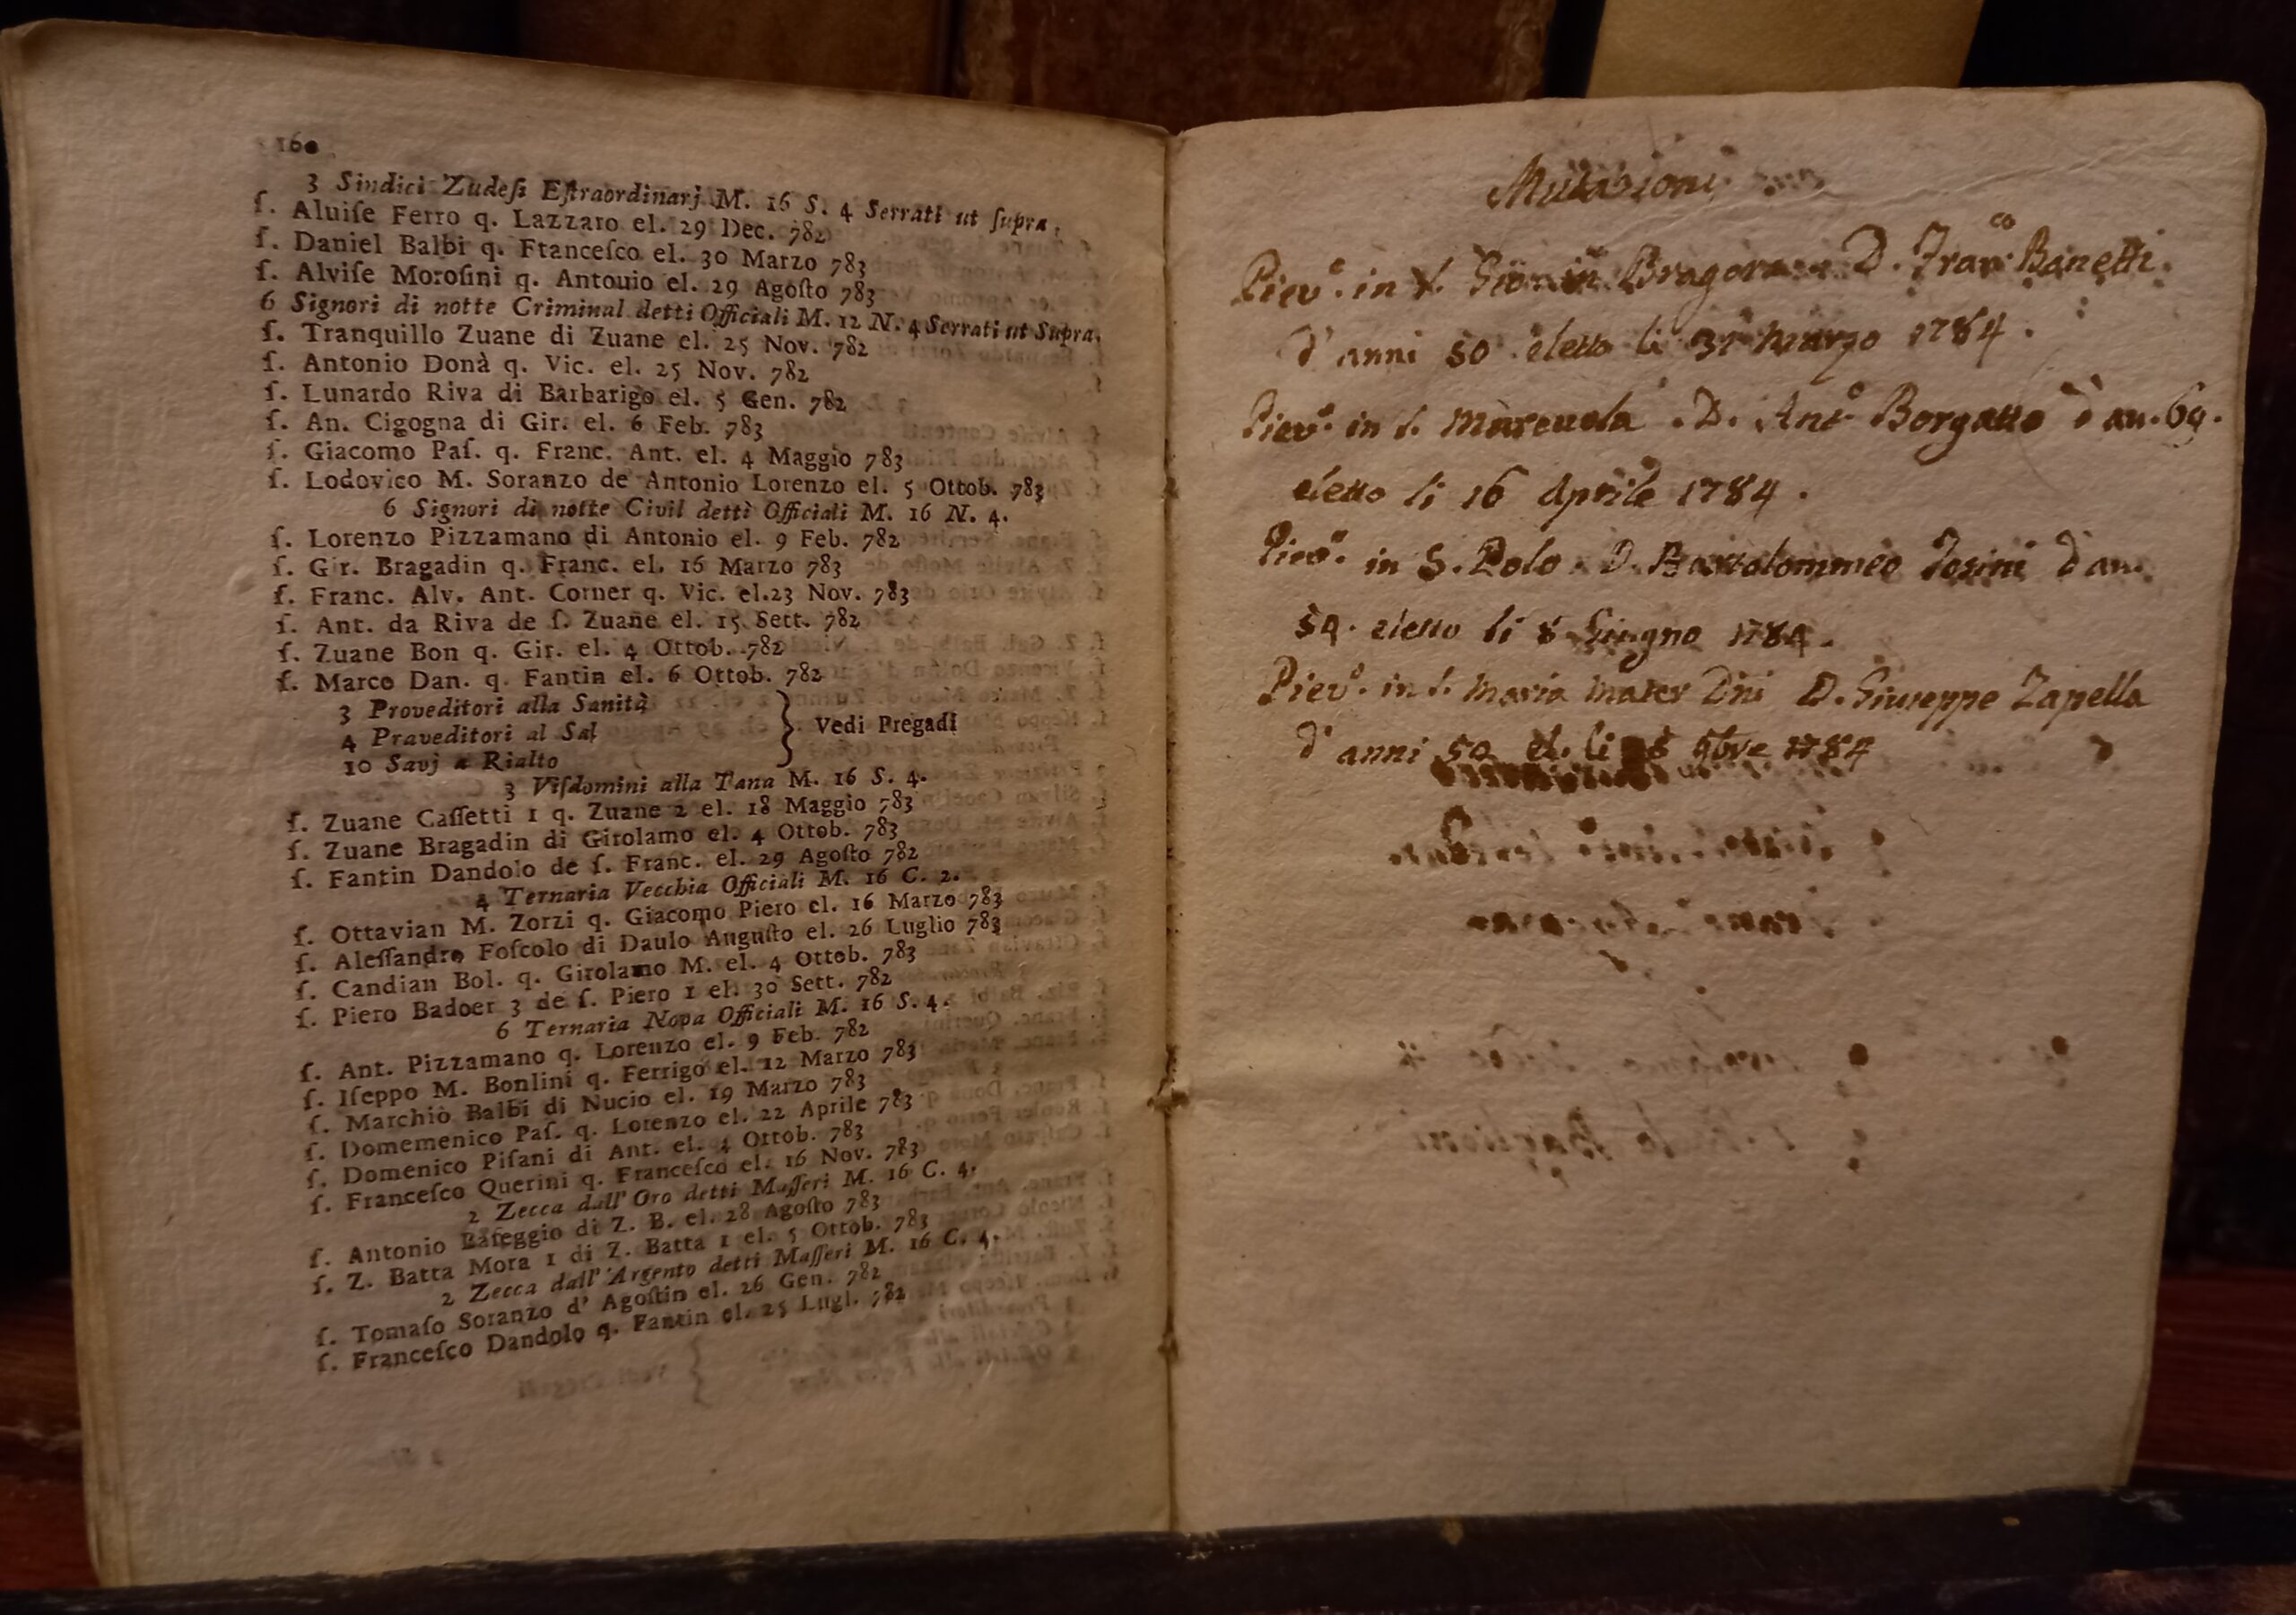 160
3 Sindici Zudeſi Eſtraordinarj M. 16 S. 4 Serrati ut ſupra.
ſ. Aluiſe Ferro q. Lazzaro el. 29 Dec. 782
ſ. Daniel Balbi q. Ftanceſco el. 30 Marzo 783
ſ. Alviſe Moroſini q. Antouio el. 29 Agoſto 783
6 Signori di notte Criminal detti Officiali M. 12 N. 4 Serrati ut Supra.
ſ. Tranquillo Zuane di Zuane el. 25 Nov. 782
ſ. Antonio Donà q. Vic. el. 25 Nov. 782
ſ. Lunardo Riva di Barbarigo el. 5 Gen. 782
ſ. An. Cigogna di Gir. el. 6 Feb. 783
ſ. Giacomo Paſ. q. Franc. Ant. el. 4 Maggio 783
ſ. Lodovico M. Soranzo de Antonio Lorenzo el. 5 Ottob. 783
6 Signori di notte Civil detti Officiali M. 16 N. 4.
ſ. Lorenzo Pizzamano di Antonio el. 9 Feb. 782
ſ. Gir. Bragadin q. Franc. el. 16 Marzo 783
ſ. Franc. Alv. Ant. Corner q. Vic. el.23 Nov. 783
ſ. Ant. da Riva de ſ. Zuane el. 15 Sett. 782
ſ. Zuane Bon q. Gir. el. 4 Ottob. 782
ſ. Marco Dan. q. Fantin el. 6 Ottob. 782
3 Proveditori alla Sanità
4 Praveditori al Sal
10 Savj a Rialto
Vedi Pregadi
3 Viſdomini alla Tana M. 16 S. 4.
ſ. Zuane Caſſetti 1 q. Zuane 2 el. 18 Maggio 783
ſ. Zuane Bragadin di Girolamo el. 4 Ottob. 783
ſ. Fantin Dandolo de ſ. Franc. el. 29 Agoſto 782
4 Ternaria Vecchia Officiali M. 16 C. 2.
ſ. Ottavian M. Zorzi q. Giacomo Piero el. 16 Marzo 783
ſ. Aleſſandro Foſcolo di Daulo Auguſto el. 26 Luglio 783
ſ. Candian Bol. q. Girolamo M. el. 4 Ottob. 783
ſ. Piero Badoer 3 de ſ. Piero 1 el. 30 Sett. 782
6 Ternaria Nova Officiali M. 16 S. 4.
ſ. Ant. Pizzamano q. Lorenzo el. 9 Feb. 782
ſ. Iſeppo M. Bonlini q. Ferrigo el. 12 Marzo 783
ſ. Marchiò Balbi di Nucio el. 19 Marzo 783
ſ. Domemenico Paſ. q. Lorenzo el. 22 Aprile 783
ſ. Domenico Piſani di Ant. el. 4 Ottob. 783
ſ. Franceſco Querini q. Franceſco el. 16 Nov. 783
2 Zecca dall' Oro detti Maſſeri M. 16 C. 4.
ſ. Antonio Baſeggio di Z. B. el. 28 Agoſto 783
ſ. Z. Batta Mora 1 di Z. Batta 1 el. 5 Ottob. 783
2 Zecca dall' Argento detti Maſſeri M. 16 C. 4.
ſ. Tomaſo Soranzo d' Agoſtin el. 26 Gen. 782
ſ. Franceſco Dandolo q. Fantin el. 25 Lugl. 782
Mutazioni
Piev.º in S. Gio: in Bragora D. Fran.co Banetti
d' anni 50 eletto li 31 Marzo 1784.
Piev.º in S. Marcuola D. Antº Borgatto d' an. 69.
eletto li 16 Aprile 1784.
Piev.º in S. Polo D. Bartolommeo d' an.
54. eletto li 8 Giugno 1784.
Piev.º in S. Maria Mater Dñi D. Giuseppe Zapella
d' anni 50 el. li 9bre 1784